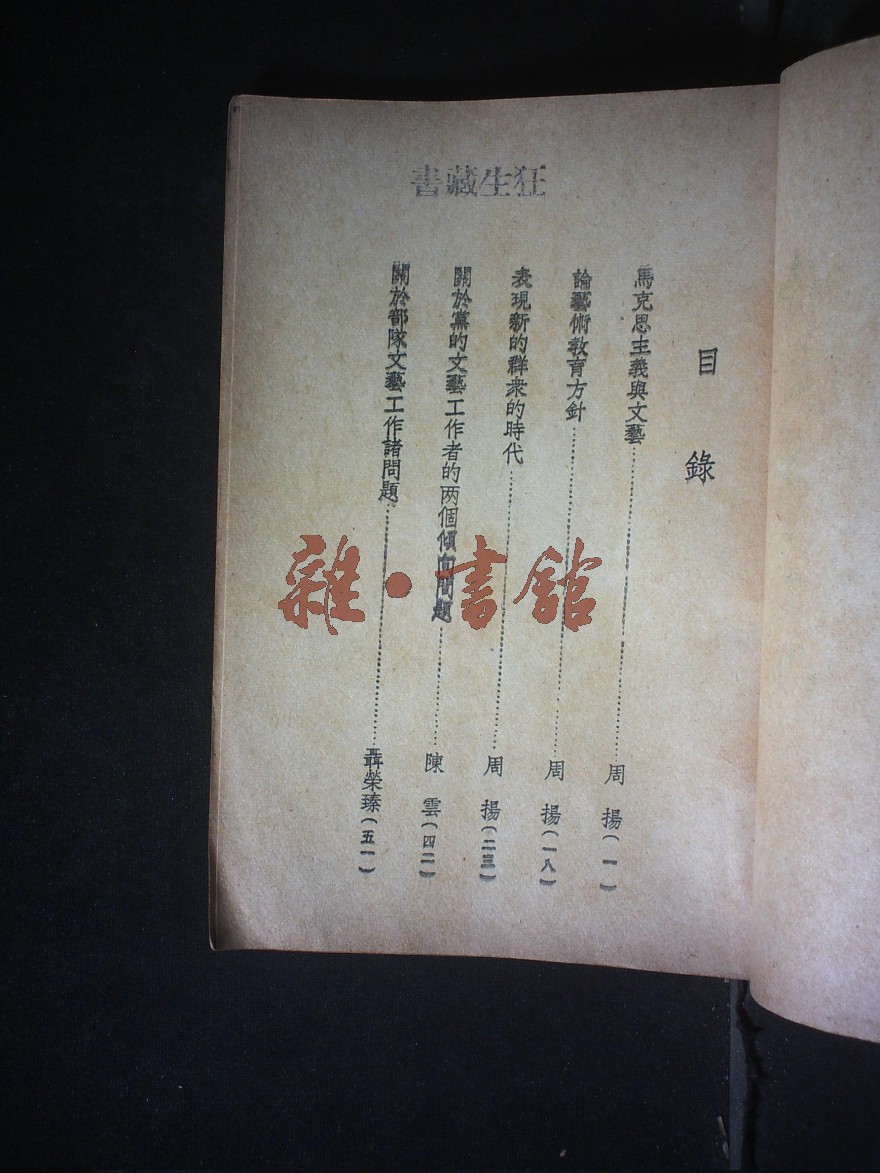 狂生藏書
目錄
馬克思主義與文藝……周揚（一）
論藝術教育方針……周揚（一八）
表現新的群衆的時代……周揚（二三）
關於黨的文藝工作者的两個傾向問題……陳雲（四二）
關於部隊文藝工作諸問題……聶榮臻（五一）
雜·書館